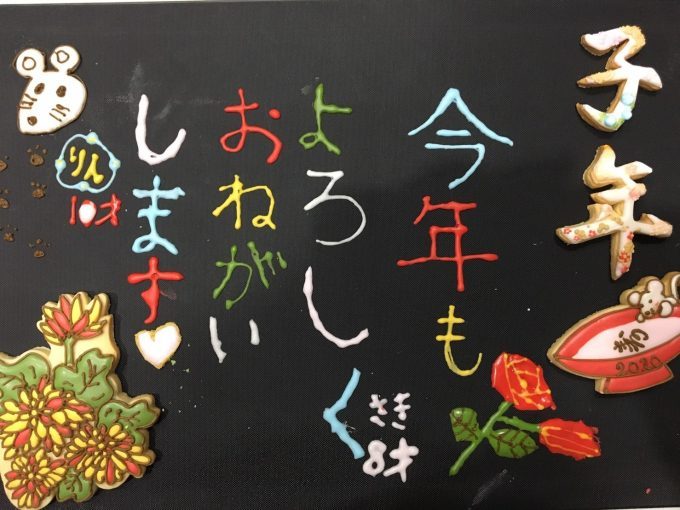 子年
2020
今年も
よろしく
おねがい
します
さき
8才
りん
10才